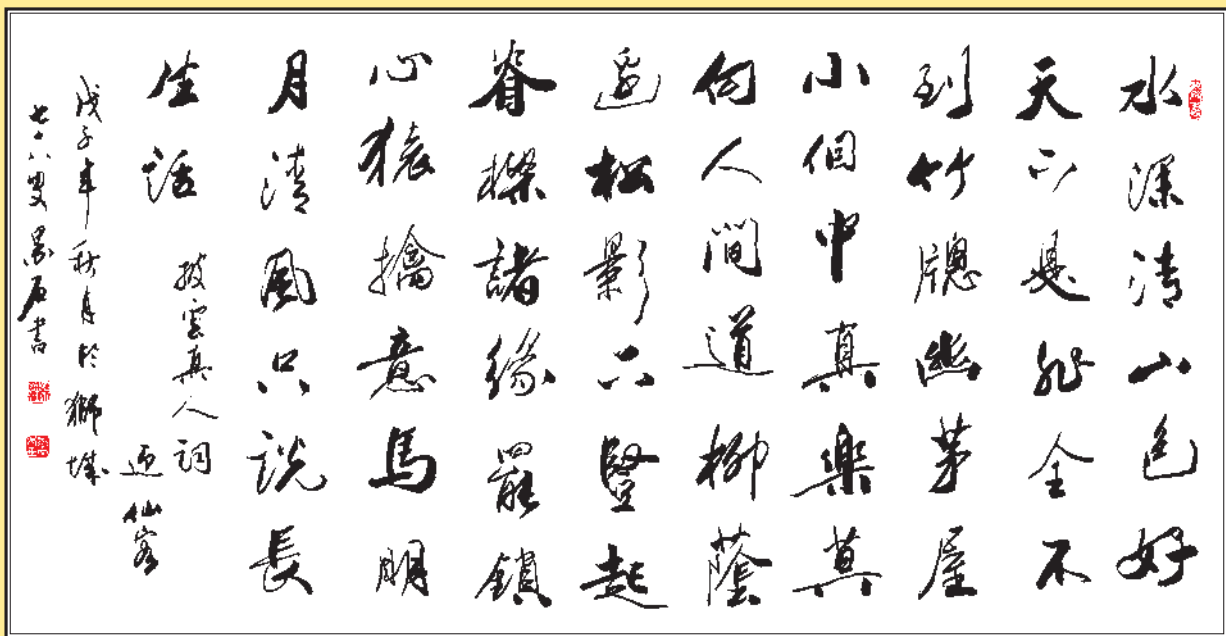 水深清山色好
天下是非全不
到竹牕幽茅屋
小個中真樂莫
向人間道柳蔭
邊松影下竪起
脊樑諸緣罷鎖
心猿擒意馬明
月清風只説長
生話
披雲真人詞
迎仙客
戊子年秋月於獅城
七十八叟石書